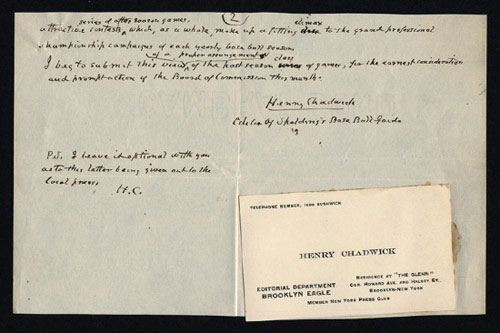 (2)
series of after season games,
climax
attractive contests, which, as a whole, make up a fitting to the grand professional
championship campaigns of each yearly base ball season.
of a proper arrangement of class
I beg to submit this view, of the post season of games, for the earnest consideration
and prompt action of the Board of Commission this month.
Henry Chadwick
Editor Of Spalding's Base Ball Guide
P.S. I leave it optional with you
as to this letter being given out to the
local press.
H.C.
TELEPHONE NUMBER, BUSHWICK
HENRY CHADWICK
EDITORIAL DEPARTMENT
BROOKLYN EAGLE
RESIDENCE AT "THE GLENN"
COR. HOWARD AVE. AND HALSEY ST.
BROOKLYN-NEW YORK
MEMBER NEW YORK PRESS CLUB